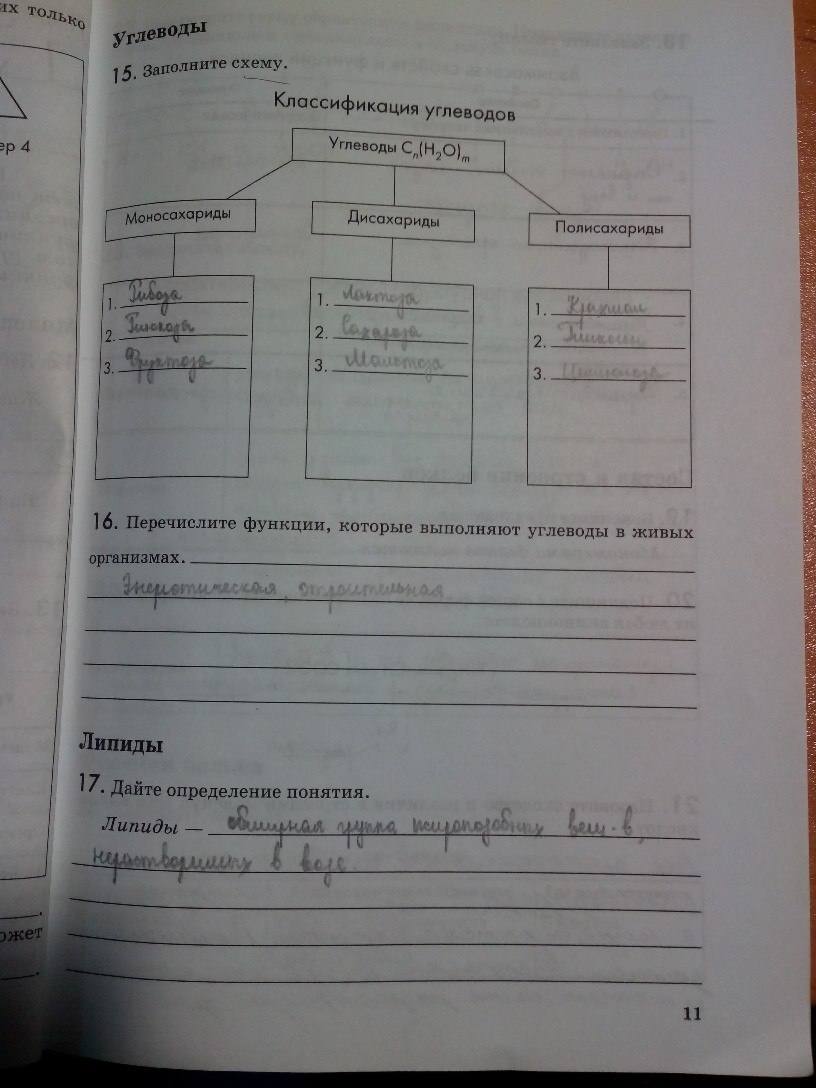 их только
Углеводы
15. Заполните схему.
Классификация углеводов
ер 4
Углеводы Cn(H2O)m
Моносахариды
Дисахариды
Полисахариды
1. Рибоза
2. Глюкоза
3. Фруктоза
1. Лактоза
2. Сахароза
3. Мальтоза
1. Крахмал
2. Гликоген
3. Целлюлоза
16. Перечислите функции, которые выполняют углеводы в живых
организмах.
Энергетическая, строительная
Липиды
17. Дайте определение понятия.
Липиды — обширная группа жироподобных вещ-в,
нерастворимых в воде.
ожет
11